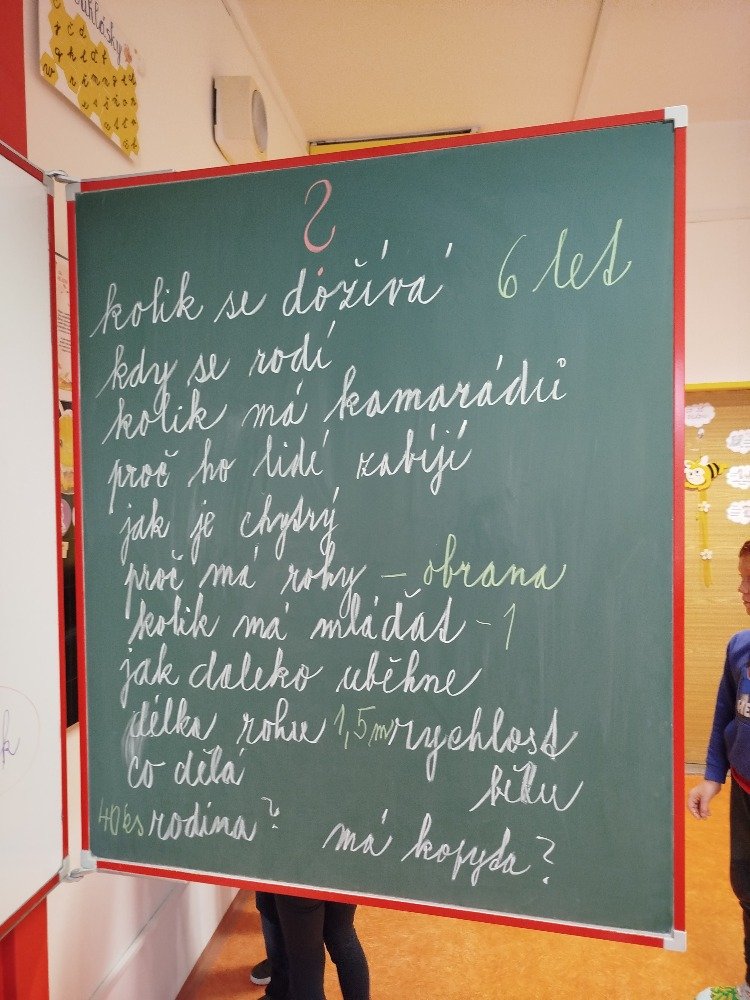 ?
kolik se dožívá 6 let
kdy se rodí
kolik má kamarádů
proč ho lidí zabíjí
jak je chytrý
proč má rohy – obrana
kolik má mláďat - 1
jak daleko uběhne
délka rohu 1,5 m rychlost
co dělá běhu
40 ks rodina? má kopyta?